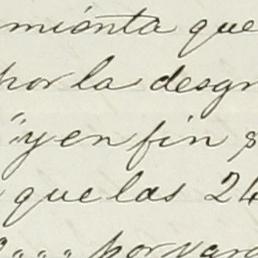 mionta que
por la desgr
"y en fin s
que las 24
por var